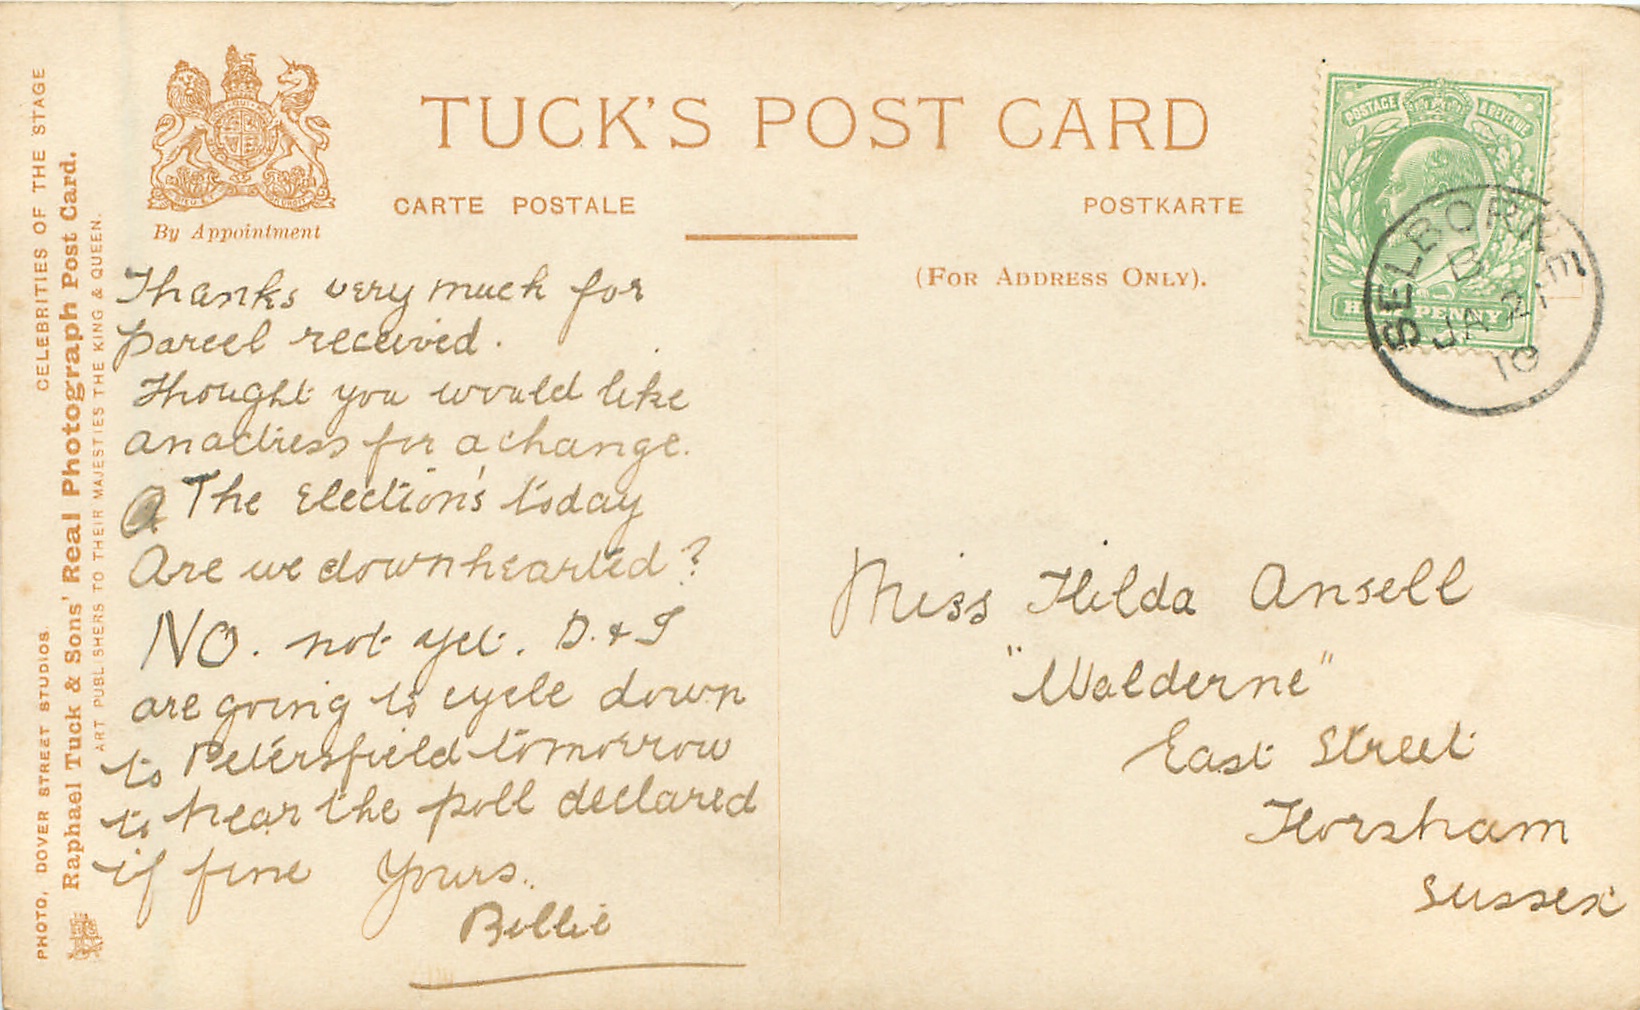 TUCK'S POST CARD
CARTE POSTALE
POSTKARTE
(FOR ADDRESS ONLY).
By Appointment
CELEBRITIES OF THE STAGE
PHOTO, DOVER STREET STUDIOS.
Raphael Tuck & Sons' Real Photograph Post Card.
ART PUBLISHERS TO THEIR MAJESTIES THE KING & QUEEN.
POSTAGE & REVENUE
HALF PENNY
SELBORNE
B
JA 21
10
Thanks very much for
parcel received.
Thought you would like
an actress for a change.
The Election's today
Are we downhearted?
NO. not yet. D. & I
are going to cycle down
to Petersfield tomorrow
to hear the poll declared
if fine Yours..
Billie
Miss Hilda Ansell
"Walderne"
East Street
Horsham
Sussex